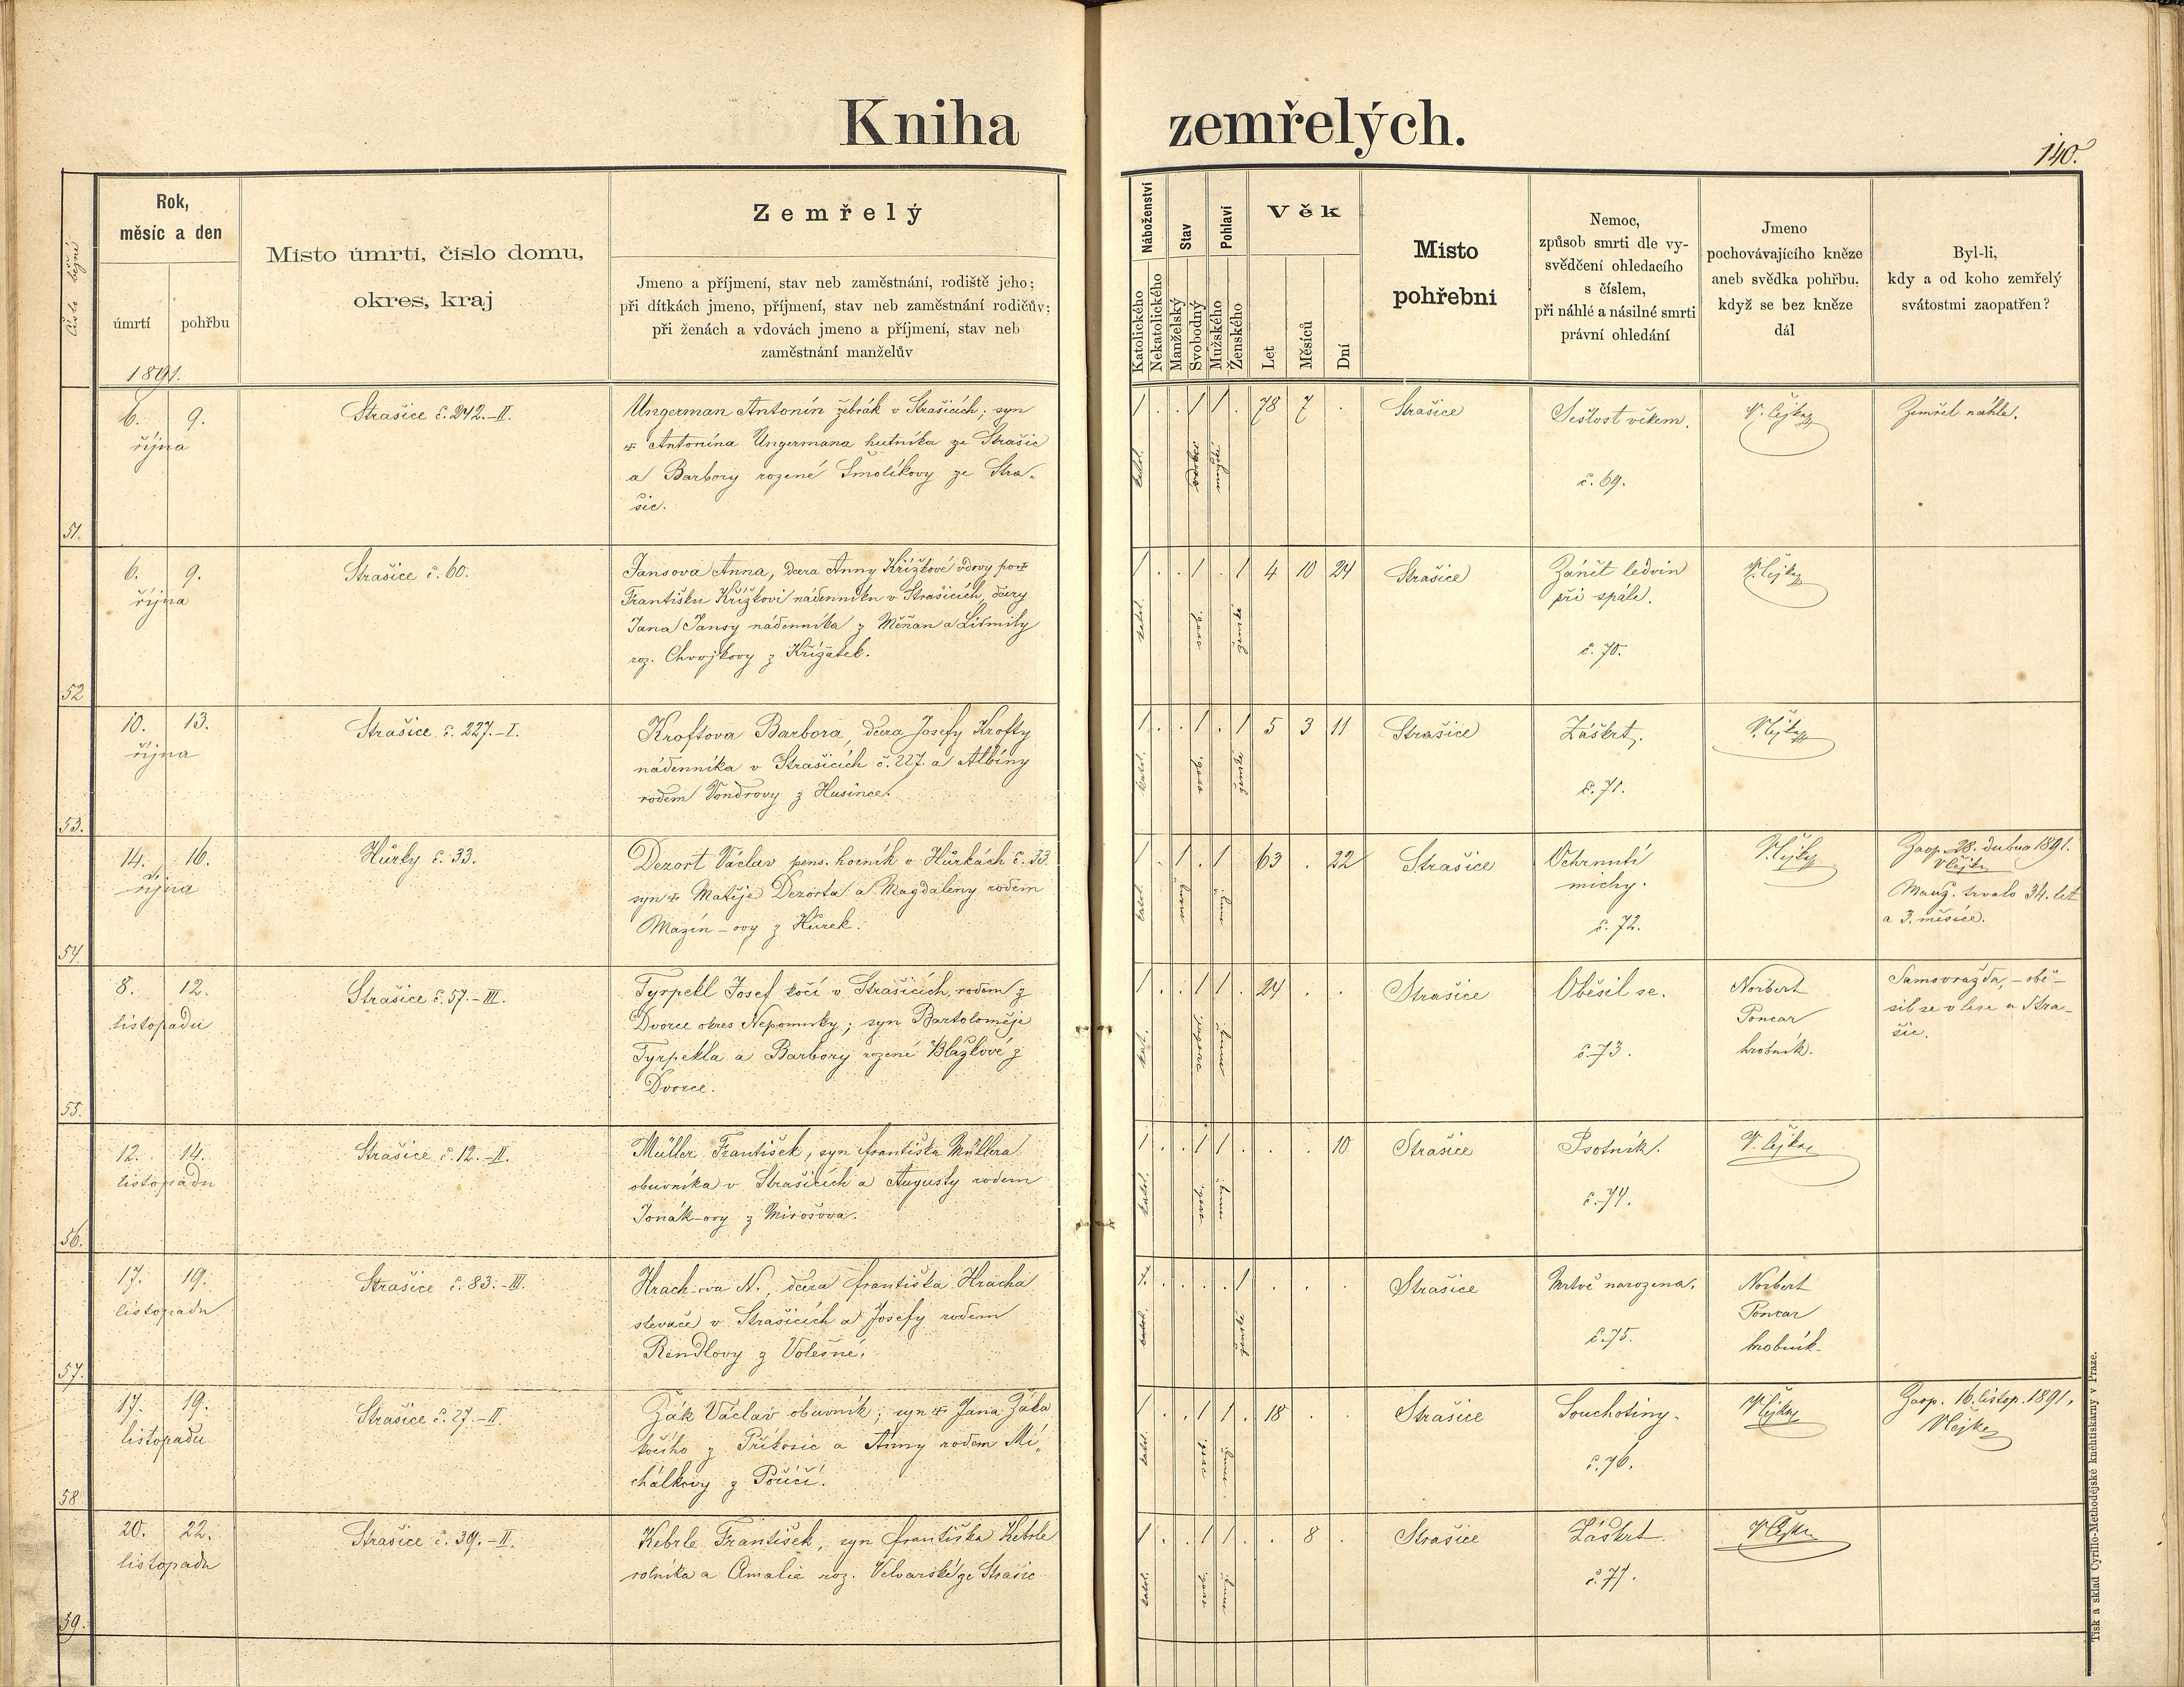 Kniha zemřelých.
140.
Číslo běžné
Rok,
měsíc a den
úmrtí
pohřbu
1891.
Místo úmrtí, číslo domu,
okres, kraj
Zemřelý
Jmeno a příjmení, stav neb zaměstnání, rodiště jeho;
při dítkách jmeno, příjmení, stav neb zaměstnání rodičův;
při ženách a vdovách jmeno a příjmení, stav neb
zaměstnání manželův
Náboženství
Katolického
Nekatolického
Stav
Manželský
Svobodný
Pohlaví
Mužského
Ženského
Věk
Let
Měsíců
Dní
Místo
pohřební
Nemoc,
způsob smrti dle vy-
svědčení ohledacího
s číslem,
při náhlé a násilné smrti
právní ohledání
Jmeno
pochovávajícího kněze
aneb svědka pohřbu,
když se bez kněze
dál
Byl-li,
kdy a od koho zemřelý
svátostmi zaopatřen?
51.
6. 9.
října
Strašice č. 242.-II.
Ungerman Antonín žebrák v Strašicích; syn
† Antonína Ungermana hutníka ze Strašic
a Barbory rozené Šmolíkovy ze Stra-
šic.
1 . . 1 1 . 78 7 .
katol.
Strašice
Sešlost věkem.
č. 69.
V. Čejka
Zemřel náhle.
52
6. 9.
října
Strašice č. 60.
Jansova Anna, dcera Anny Křížkové vdovy po †
Františku Křížkovi nádenníku v Strašicích, dcery
Jana Jansy nádenníka z Měňan a Lidmily
roz. Chvojkovy z Křížatek.
1 . . 1 . 1 4 10 24
katol.
ženské
Strašice
Zánět ledvin
při spále.
č. 70.
V. Čejka
53.
10. 13.
října
Strašice č. 227.-I.
Kroftova Barbora, dcera Josefy Krofty
nádenníka v Strašicích č. 227. a Albíny
rodem Vondrovy z Husince.
1 . . 1 . 1 5 3 11
katol.
ženské
Strašice
Záškrt.
č. 71.
V. Čejka
54.
14. 16.
října
Hůrky č. 33.
Dezort Václav pens. horník v Hůrkách č. 33.
syn † Matěje Dezorta a Magdaleny rodem
Mazín-ovy z Hůrek.
1 . 1 . 1 63 . 22
katol.
Strašice
Ochrnutí
míchy.
č. 72.
V. Čejka
Zaop. 28. dubna 1891.
V. Čejka
Manž. trvalo 34. let
a 3. měsíce.
55.
8. 12.
listopadu
Strašice č. 57.-III.
Tyrpekl Josef kočí v Strašicích, rodem z
Dvorce okres Nepomuky; syn Bartoloměje
Tyrpekla a Barbory rozené Blažkové z
Dvorce.
1 . . 1 1 . 24 . .
kat.
Strašice
Oběsil se.
č. 73.
Norbert
Poncar
hrobník.
Samovražda, - obě-
sil se v lese u Stra-
šic.
56.
12. 14.
listopadu
Strašice č. 12.-II.
Müller František, syn Františka Müllera
obuvníka v Strašicích a Augusty rodem
Jonák-ovy z Mirošova.
1 . . 1 1 . . . 10
katol.
Strašice
Psotník.
č. 74.
V. Čejka
57.
17. 19.
listopadu
Strašice č. 83.-III.
Hrach-ova N., dcera Františka Hracha
slevače v Strašicích a Josefy rodem
Rendlovy z Volešné.
. . . . 1 . . .
katol.
ženské
Strašice
Mrtvě narozena.
č. 75.
Norbert
Poncar
hrobník.
58
17. 19.
listopadu
Strašice č. 27.-II.
Žák Václav obuvník; syn † Jana Žáka
kočího z Příkosic a Anny rodem Mi-
chálkovy z Poříčí.
1 . . 1 1 . 18 . .
katol.
Strašice
Souchotiny.
č. 76.
V. Čejka
Zaop. 16. listop. 1891.
V. Čejka
59.
20. 22.
listopadu
Strašice č. 39.-II.
Kebrle František, syn Františka Kebrle
rolníka a Amalie roz. Velvarské ze Strašic
1 . . 1 1 . . 8 .
katol.
Strašice
Záškrt.
č. 77.
V. Čejka
Tisk a sklad Cyrillo-Methodějské knehtiskárny v Praze.